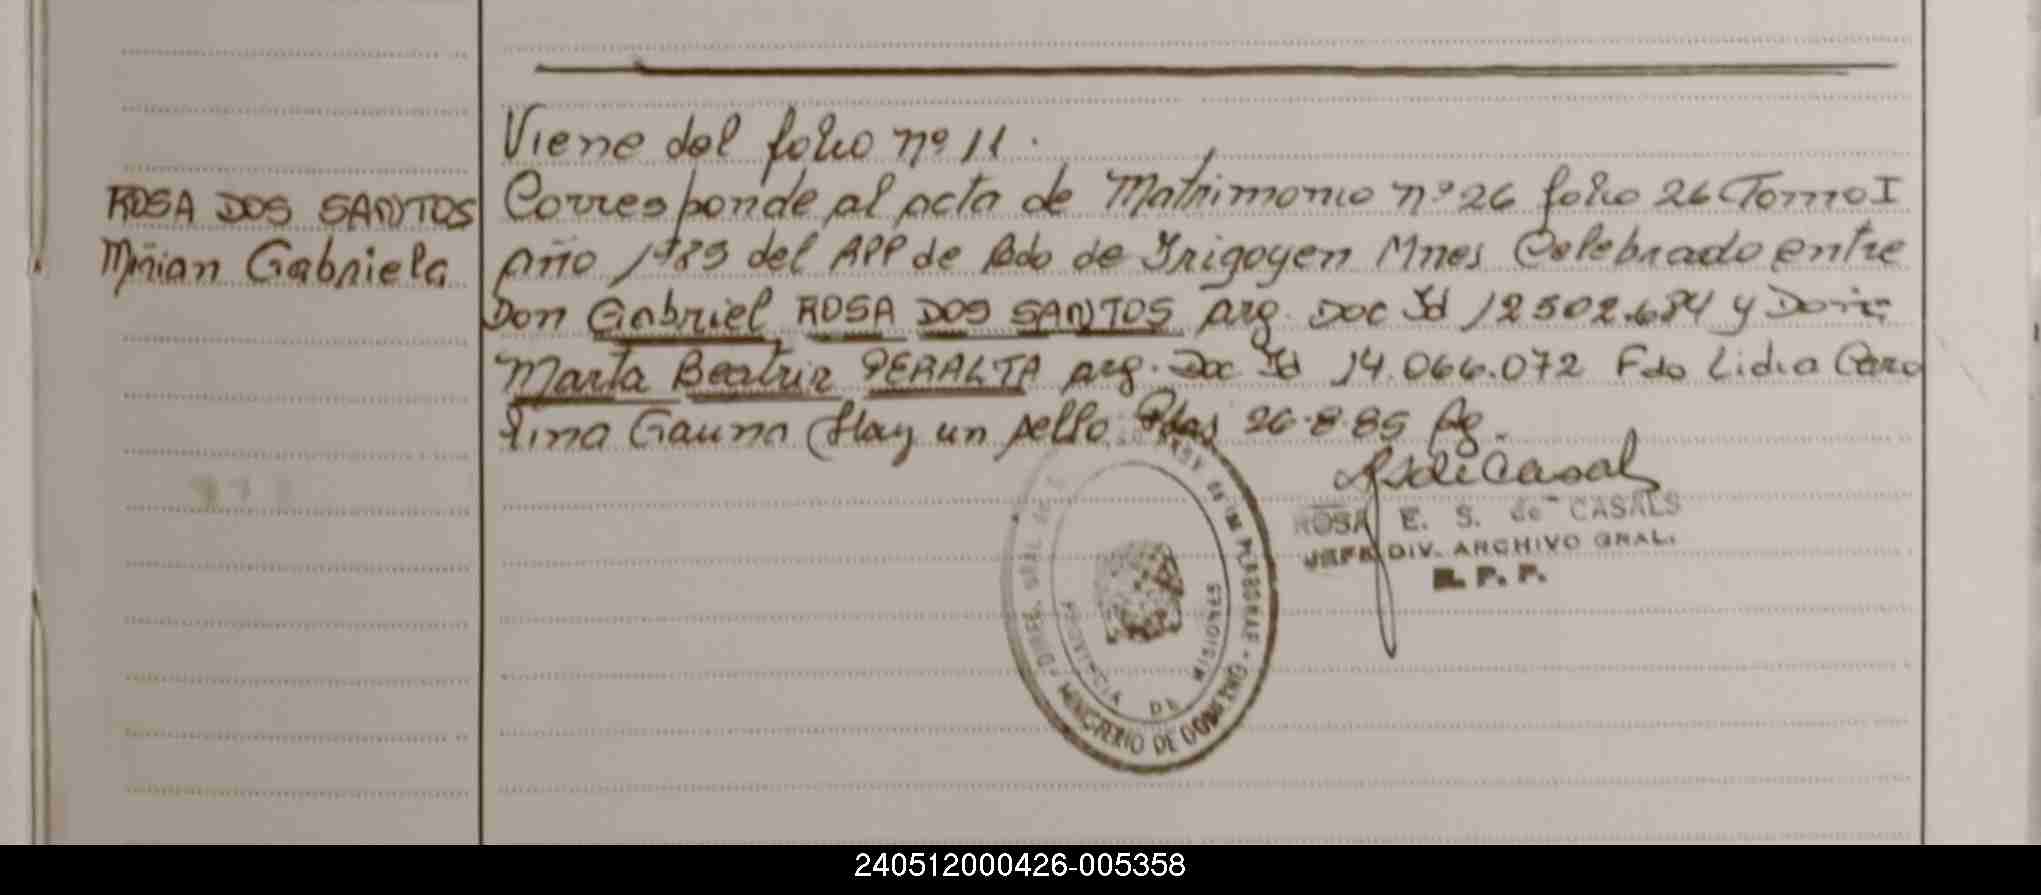 Viene del folio nº 11.
ROSA DOS SANTOS
Mirian Gabriela
Corresponde al acta de Matrimonio nº 26 folio 26 Tomo I
año 1985 del APP de Bdo de Irigoyen Mnes Celebrado entre
Don Gabriel ROSA DOS SANTOS arg. Doc Id 12502.684 y Doña
Marta Beatriz PERALTA arg. Doc Id 14.066.072 Fdo Lidia Caro
lina Gauna (Hay un sello. Pdas 26-8-85
ROSA E. S. de CASALS
JEFE DIV. ARCHIVO GRAL.
R. P. P.
PROVINCIA DE MISIONES
MINISTERIO DE GOBIERNO
240512000426-005358